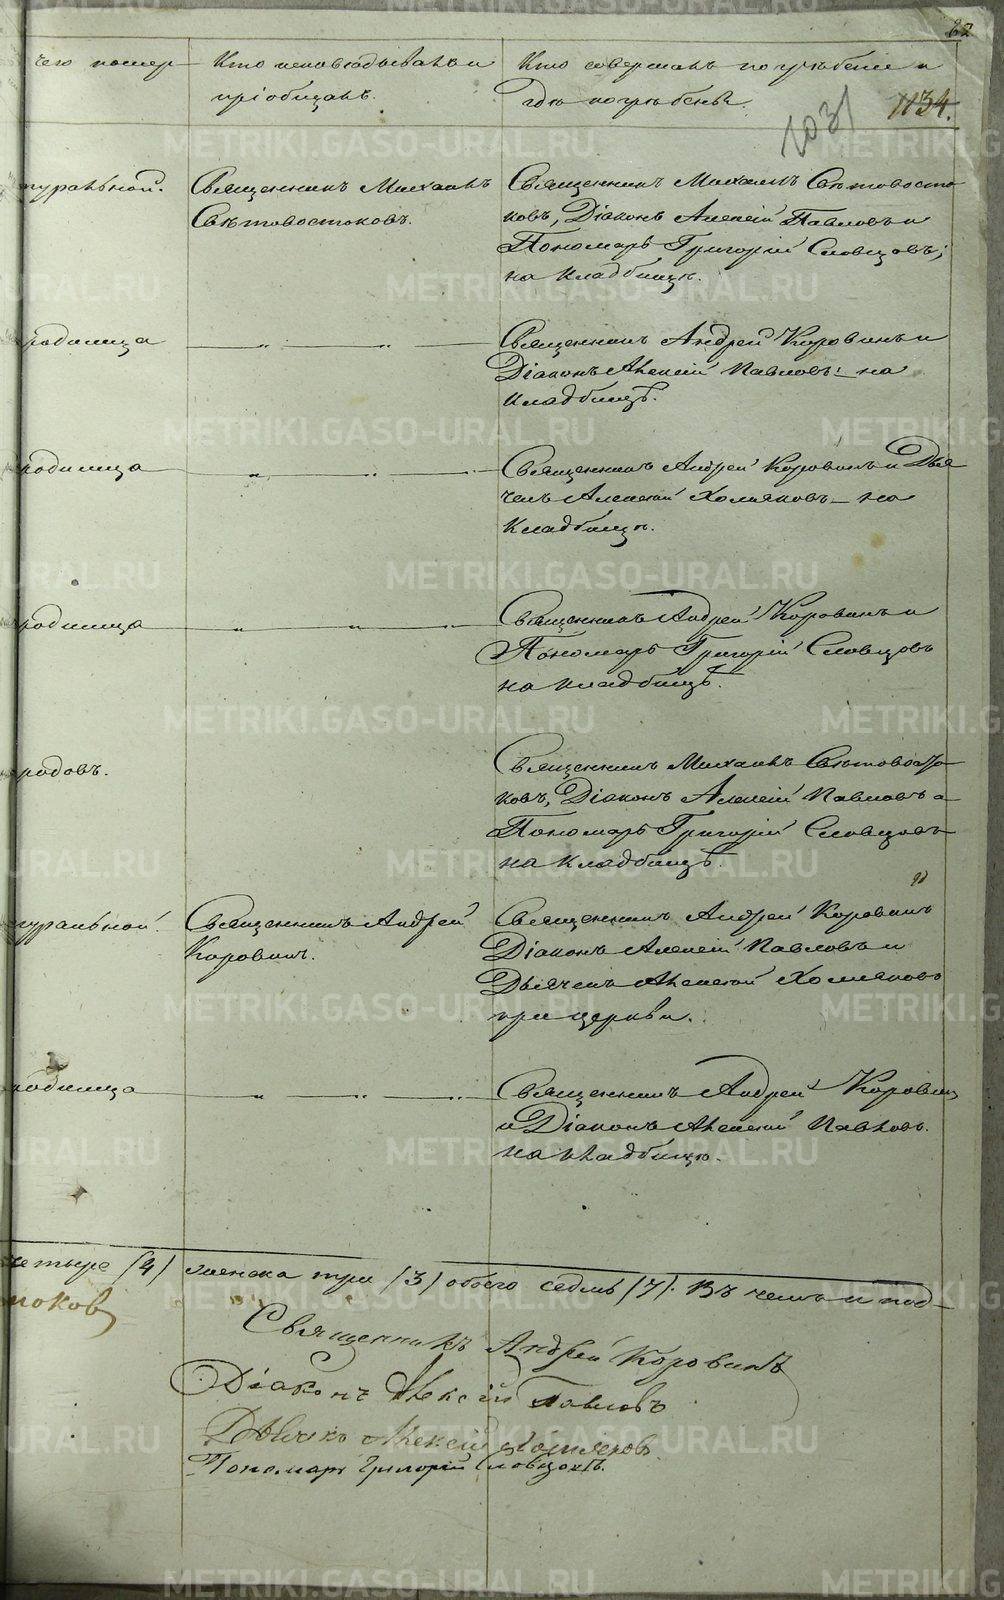 62
чего померъ
Кто исповѣдывалъ и
пріобщалъ.
Кто совершалъ погребеніе и
гдѣ погребены.
1031
1134.
туральной.
Священникъ Михаилъ
Свѣтовостоковъ.
Священникъ Михаилъ Свѣтовосто-
ковъ, Діаконъ Алексѣй Павловъ и
Пономарь Григорій Словцовъ;
на кладбищѣ.
родимца
Священникъ Андрей Коровинъ и
Діаконъ Алексѣй Павловъ: на
кладбищѣ.
родимца
Священникъ Андрей Коровинъ и Дья
чекъ Алексѣй Холмяковъ на
Кладбищѣ.
родимца
Священникъ Андрей Коровинъ и
Пономарь Григорій Словцовъ
на кладбищѣ.
родовъ.
Священникъ Михаилъ Свѣтовосто-
ковъ, Діаконъ Алексѣй Павловъ а
Пономарь Григорій Словцовъ
на кладбищѣ
туральной.
Священникъ Андрей
Коровинъ.
Священникъ Андрей Коровинъ
Діаконъ Алексѣй Павловъ и
Дьячекъ Алексѣй Холмяковъ
при церкви.
родимца
Священникъ Андрей Коровинъ
и Діаконъ Алексѣй Павловъ.
на кладбищѣ.
четыре (4) женска три (3) обоего седмь (7). Въ чемъ и под-
токов
Священникъ Андрей Коровинъ
Діаконъ Алексій Павловъ
Дьячекъ Алексей Холмяковъ
Пономарь Григорій Словцовъ.
METRIKI.GASO-URAL.RU